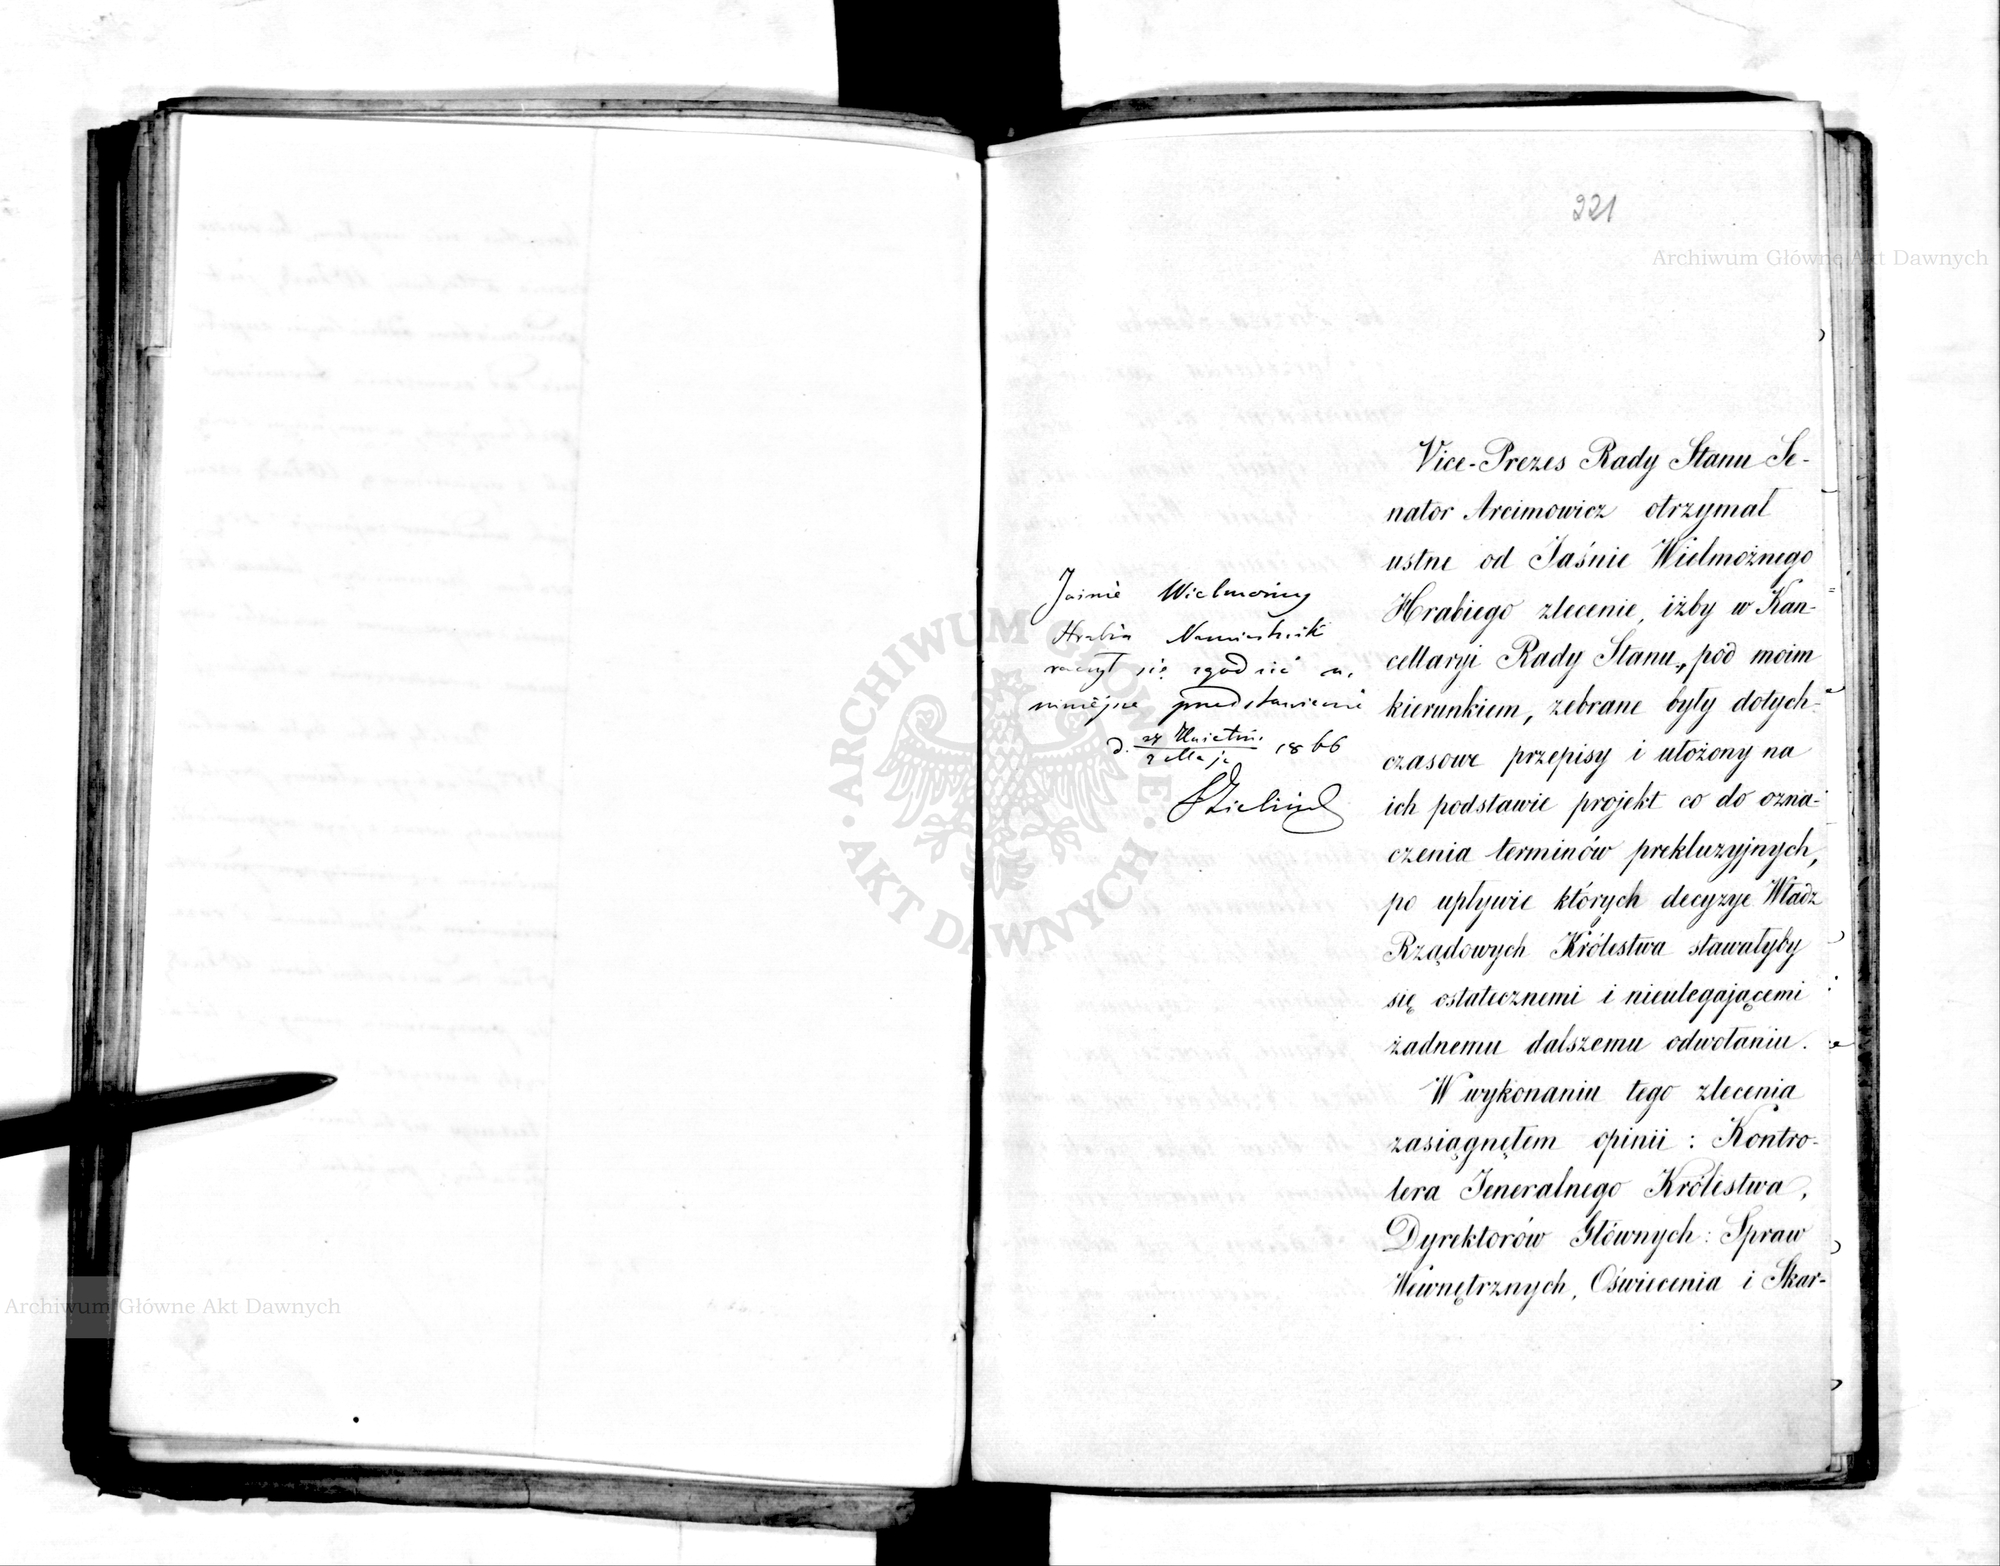 221
Vice-Prezes Rady Stanu Se-
nator Arcimowicz otrzymał
ustne od Jaśnie Wielmożnego
Hrabiego zlecenie, iżby w Kan-
cellaryi Rady Stanu, pod moim
kierunkiem, zebrane były dotych-
czasowe przepisy i ułożony na
ich podstawie projekt co do ozna-
czenia terminów prekluzyjnych,
po upływie których decyzye Władz
Rządowych Królestwa stawałyby
się ostatecznemi i nieulegającemi
żadnemu dalszemu odwołaniu.
W wykonaniu tego zlecenia
zasiągnęłem opinii: Kontro-
lera Jeneralnego Królestwa,
Dyrektorów Głównych: Spraw
Wewnętrznych, Oświecenia i Skar-
Jaśnie Wielmożny
Hrabia Namiestnik
raczył się zgodzić na
niniejsze przedstawienie
d. Kwietnia 1866
Maja
ARCHIWUM GŁÓWNE
AKT DAWNYCH
Archiwum Główne Akt Dawnych
Archiwum Główne Akt Dawnych